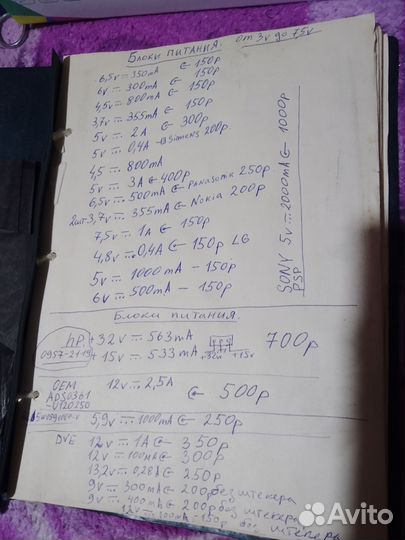 Блоки питания. от 3v до 75v
6,5v = 350mA ∈ 150р
6v = 300mA 150р
4,5v = 800mA ∈ 150р
3,7v = 355mA ∈ 150р
5v = 2A ∈ 300р
5v = 0,4A Siemens 200р.
4,5 = 800mA
5v = 3A ∈ 400р
6,5v = 500mA ∈ Panasonic 250р
2шт 3,7v = 355mA ∈ Nokia 200р
7,5v = 1A ∈ 150р
4,8v = 0,4A ∈ 150р LG
5v = 1000mA - 150р
6v = 500mA - 150р
SONY 5v = 2000mA ∈ 1000р
PSP
Блоки питания.
hP +32v = 563mA 700р
0957-2119 +15v = 533mA +32v +15v
OEM 12v = 2,5A ∈ 500р
ADS0361
-0120250
5,9v = 1000mA ∈ 250р
DVE 12v = 1A ∈ 350р
12v = 100mA ∈ 300р
13,2v = 0,28A ∈ 250р
9v = 300mA ∈ 200р без штекера
9v = 400mA ∈ 200р без штекера
12v = 500mA - 150р без штекера
Avito